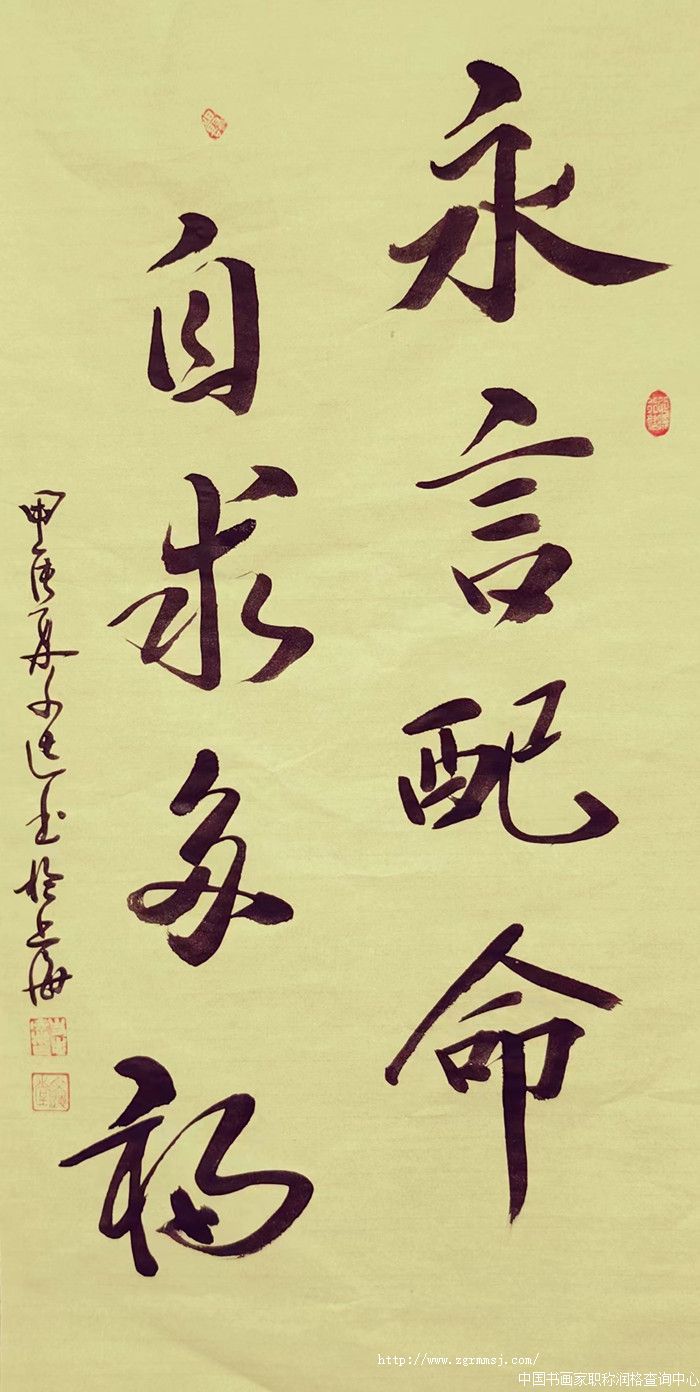 永言配命
自求多福
甲辰夏 書於上海
http://www.zgrmmsj.com/
中国书画家职称润格查询中心